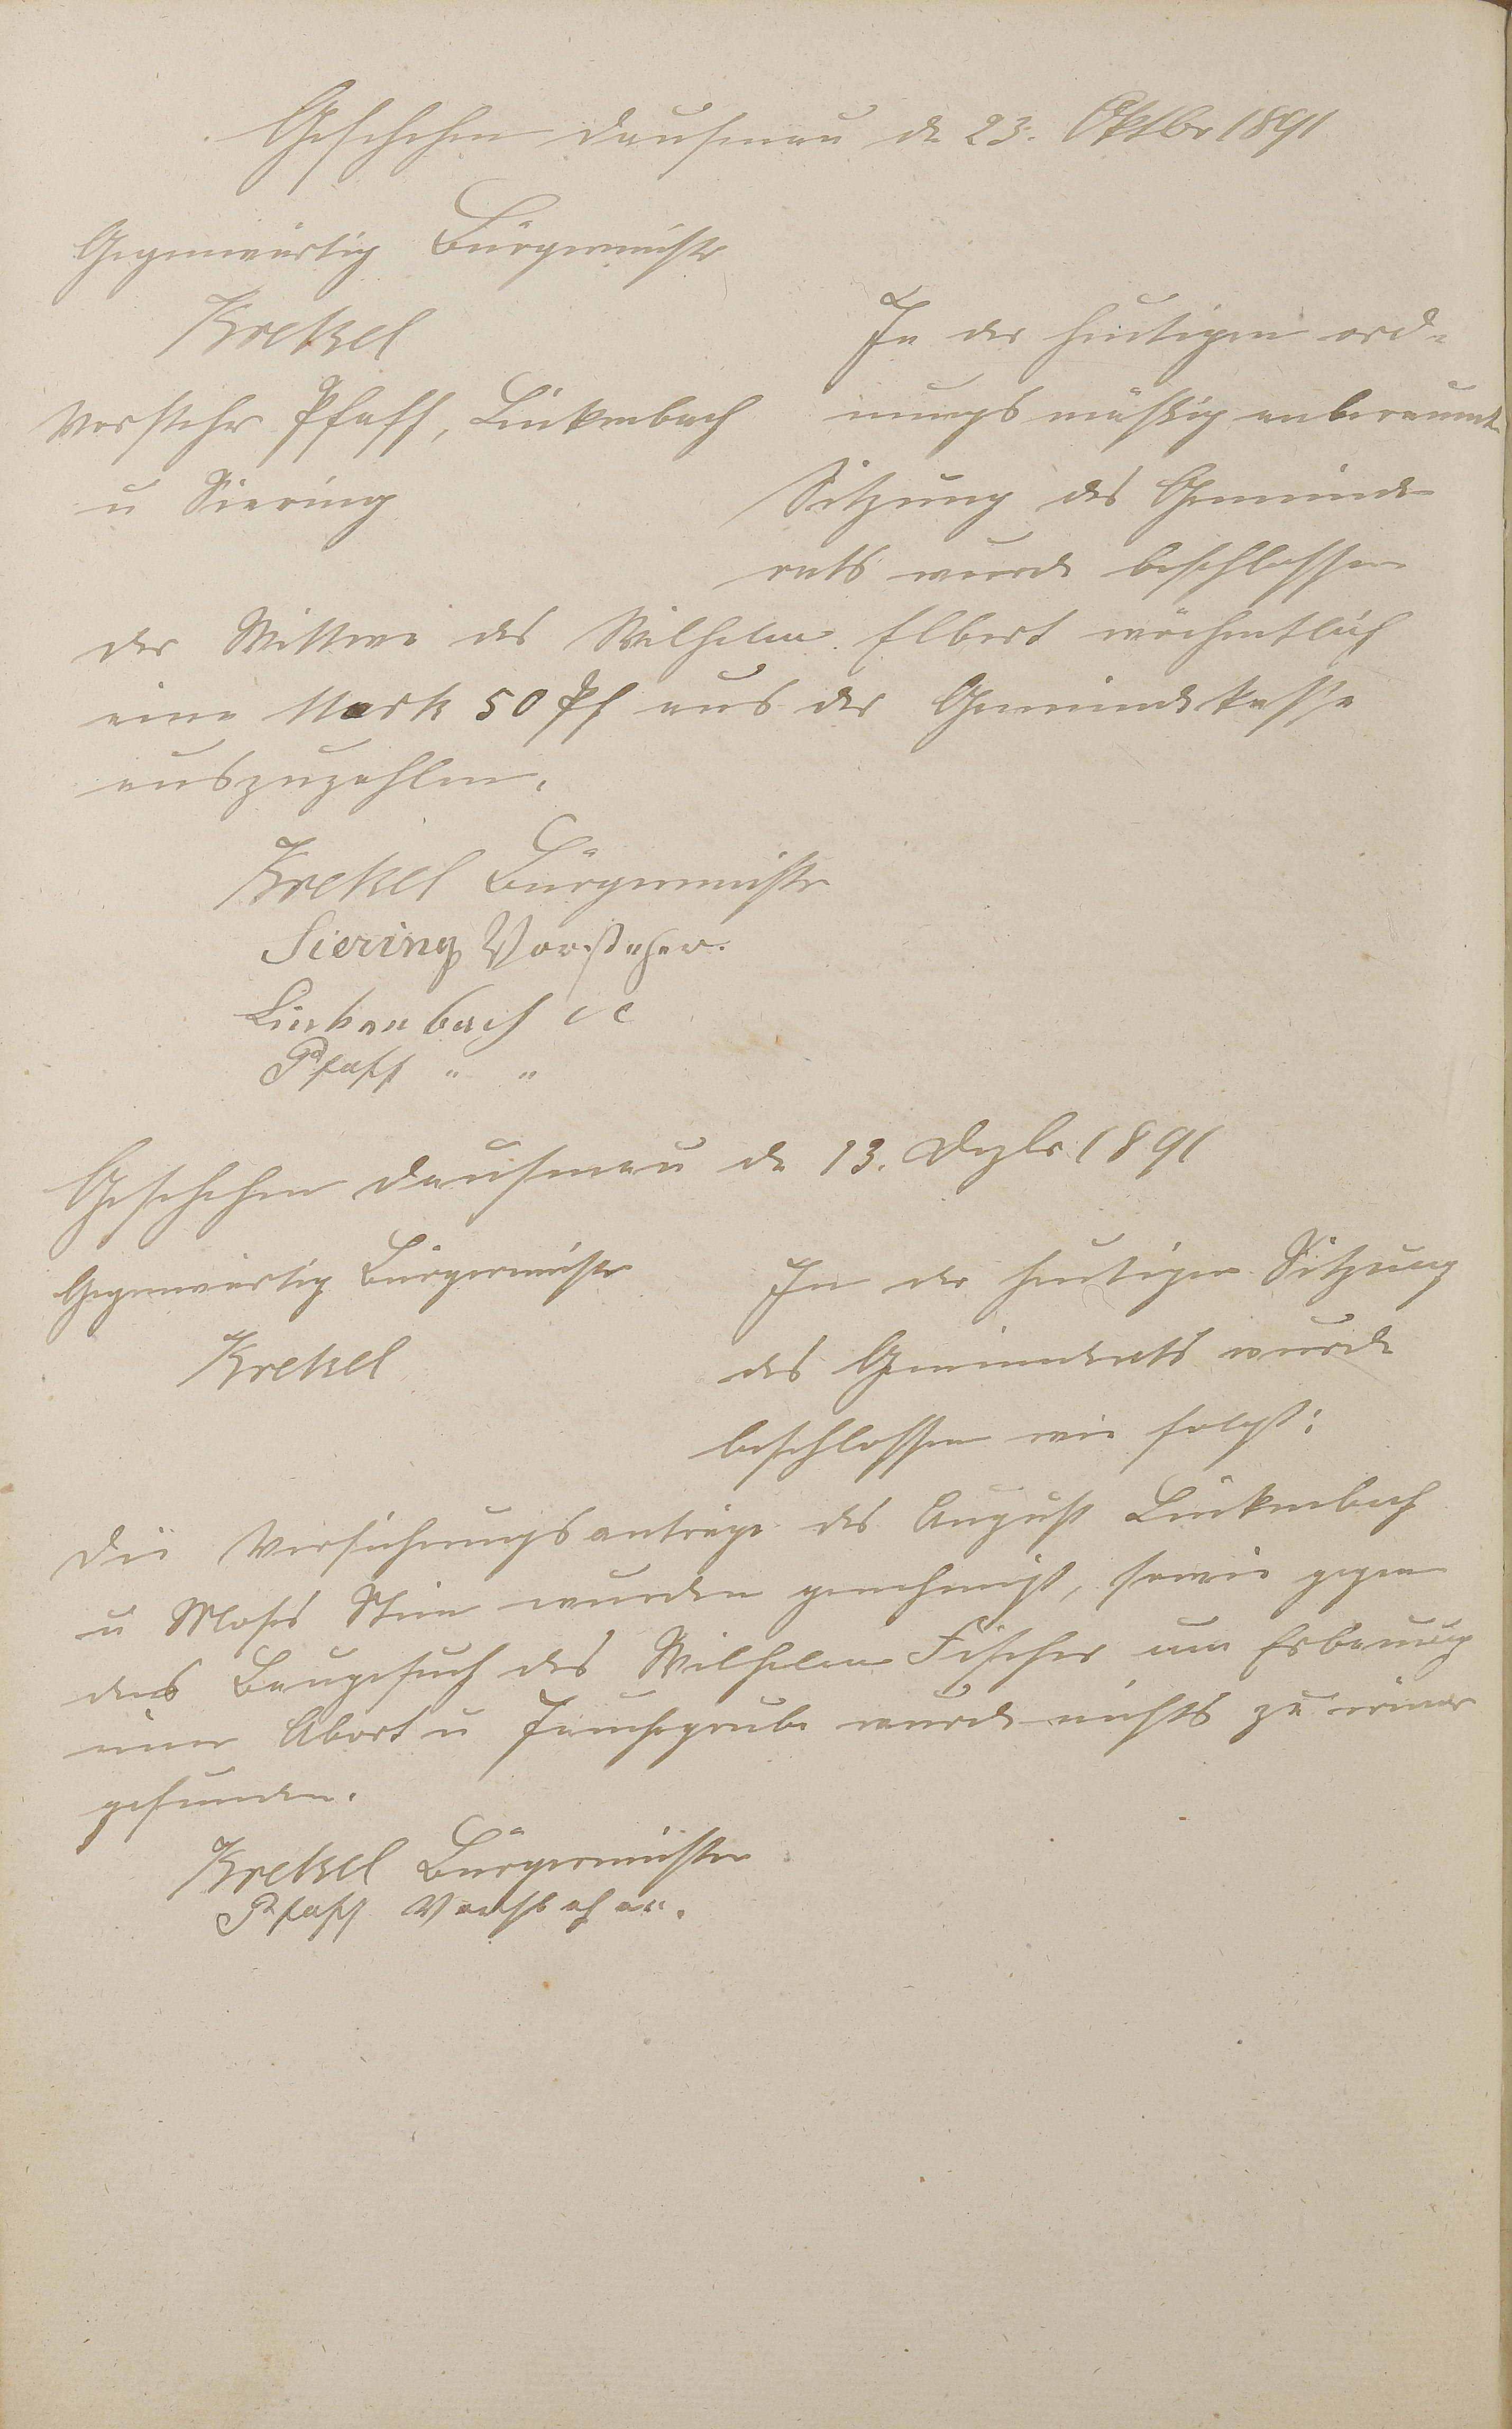 Geschehen Dausenau de 23. Oktbr 1891
Gegenwärtig Bürgermeister
Krekel
Vorsteher Pfaff, Linkenbach
u Siering
In der heutigen ord-
nungsmäßig anberaumte
Sitzung des Gemeinde-
rats wurde beschlossen
der Wittwe des Wilhelm Elbert wöchentlich
eine Mark 50 Pf aus der Gemeindekasse
auszuzahlen.
Krekel Bürgermeister
Siering Vorsteher.
Linkenbach
Pfaff " "
Geschehen Dausenau de 13. Dezbr 1891
Gegenwärtig Bürgermeister
Krekel
In der heutigen Sitzung
des Gemeinderats wurde
beschlossen wie folgt:
Die Versicherungsanträge des August Linkenbach
u Moses Stein wurden genehmigt, sowie gegen
das Baugesuch des Wilhelm Fischer um Erbauung
einer Abort u Jauchegrube wurde nichts zu erinner
gefunden.
Krekel Bürgermeister
Pfaff Vorsteher.